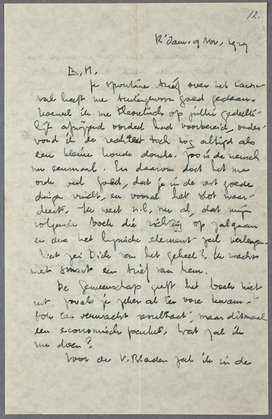 12.
R'dam, 9 Nov. 1929
B.M.
Je spontane brief over het Carne-
val heeft me buitengewoon goed gedaan.
Hoewel ik me theoretisch op jullie gedeelte-
lijk afwijzend oordeel had voorbereid, onder-
vond ik de rechtheid toch nog altijd als
een kleine koude douche. Zoo is de mensch
nu eenmaal. En daarom doet het me
ook veel goed, dat je in de rest goede
dingen vindt, en vooral het slot waar-
deert. Ik weet n.l. nu al, dat mijn
volgende boek die richting op zal gaan
en dus het lyrische element zal verlaten.
Wat zei Dick van het geheel? Ik wacht
met smart een brief van hem.
De Gemeenschap geeft het boek niet
uit, zooals je zeker al ter oore kwam.
Een te verwachten resultaat, maar ditmaal
een economisch punt. Wat zal ik
nu doen?
Voor de V. Bladen zal ik in de